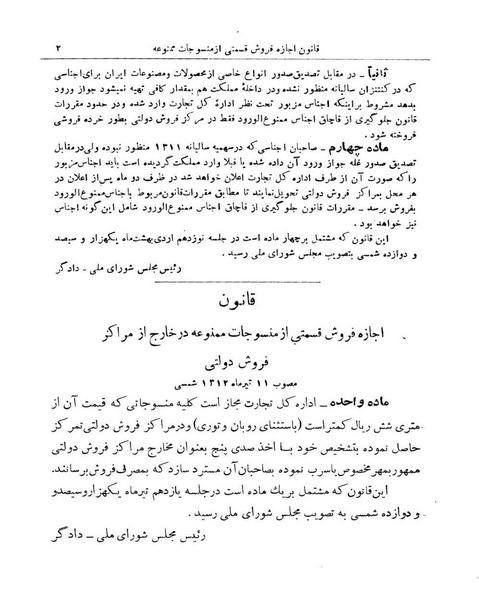 قانون اجازه فروش قسمتی از منسوجات ممنوعه ۲
ثانیاً – در مقابل تصدیق صدور انواع خاصی از محصولات و مصنوعات ایران برای اجناسی
که در کنتنژان سالیانه منظور نشده و در داخلهٔ مملکت هم بمقدار کافی تهیه نمیشود جواز ورود
بدهد مشروط براینکه اجناس مزبور تحت نظر ادارهٔ کل تجارت وارد شده و در حدود مقررات
قانون جلوگیری از قاچاق اجناس ممنوع الورود فقط در مرکز فروش دولتی بطور خرده فروشی
فروخته شود .
ماده چهارم – صاحبان اجناسی که در سهمیه سالیانه ۱۳۱۱ منظور نبوده ولی در مقابل
تصدیق صدور غله جواز ورود آن داده شده یا قبلا وارد مملکت گردیده است باید اجناس مزبور
را که صورت آن از طرف اداره کل تجارت اعلان خواهد شد در ظرف دو ماه پس از اعلان در
هر محل بمراکز فروش دولتی تحویل نمایند تا مطابق مقررات قانون مربوط باجناس ممنوع الورود
بفروش برسد – مقررات قانون جلوگیری از قاچاق اجناس ممنوع الورود شامل این گونه اجناس
نیز خواهد بود .
این قانون که مشتمل برچهار ماده است در جلسه نوزدهم اردی بهشت ماه یکهزار و سیصد
و دوازده شمسی بتصویب مجلس شورای ملی رسید .
رئیس مجلس شورای ملی – دادگر
قانون
اجازه فروش قسمتی از منسوجات ممنوعه در خارج از مراکز
فروش دولتی
مصوب ۱۱ تیرماه ۱۳۱۲ شمسی
ماده واحده – اداره کل تجارت مجاز است کلیه منسوجاتی که قیمت آن از
متری شش ریال کمتر است (باستثنای روبان و توری) و در مراکز فروش دولتی تمرکز
حاصل نموده بتشخیص خود با اخذ صدی پنج بعنوان مخارج مراکز فروش دولتی
ممهور بمهر مخصوص یا سرب نموده بصاحبان آن مسترد سازد که بمصرف فروش برسانند.
این قانون که مشتمل بریک ماده است در جلسه یازدهم تیرماه یکهزار و سیصد و
و دوازده شمسی به تصویب مجلس شورای ملی رسید .
رئیس مجلس شورای ملی – دادگر